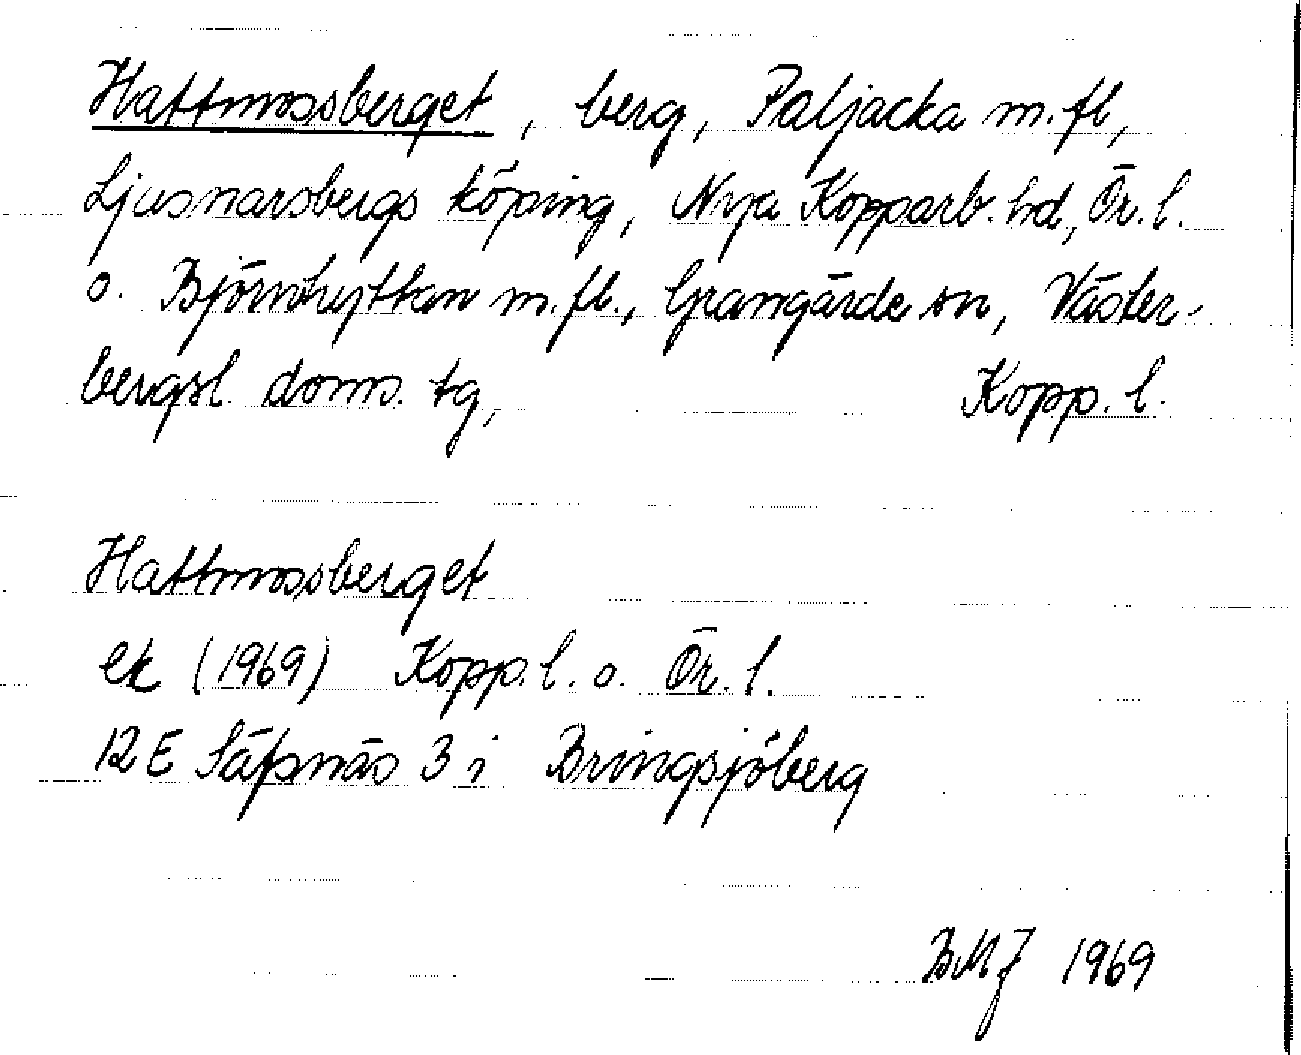 Hattmossberget, berg, Paljacka m.fl,
Ljusnarsbergs köping, Nya Kopparb. hd, Ör. l.
o. Björnhyttan m.fl., Grangärde sn, Väster-
bergsl. doms. tg, Kopp. l.
Hattmossberget
ek (1969) Kopp. l. o. Ör. l.
12 E Säfsnäs 3 i Bringsjöberg
BMJ 1969